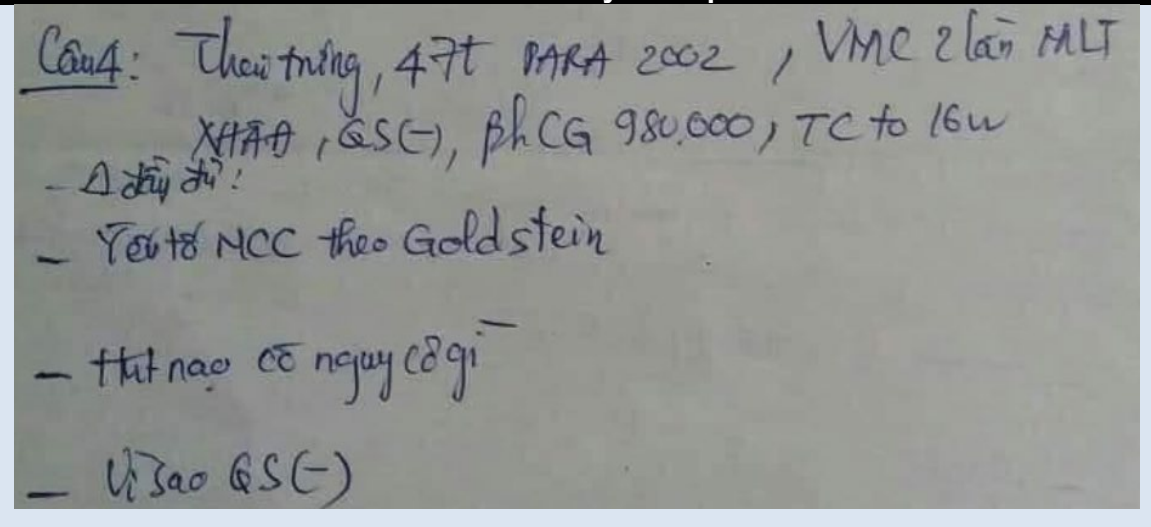 Câu 4: Thai trứng, 47t PARA 2002, VMC 2 lần MLT
XHÂĐ, QS(-), βhCG 980.000, TC to 16w
- Δ đầy đủ:
- Yếu tố NCC theo Goldstein
- Hút nạo có nguy cơ gì
- Vì sao QS(-)